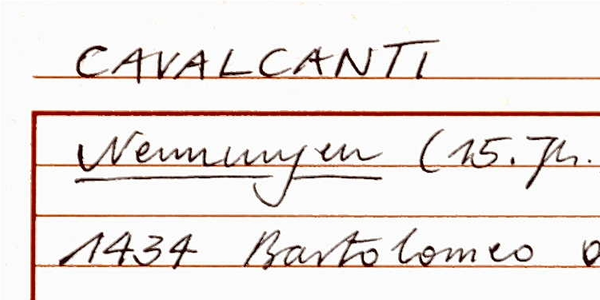 CAVALCANTI
Nennungen (15. Jh.
1434 Bartolomeo